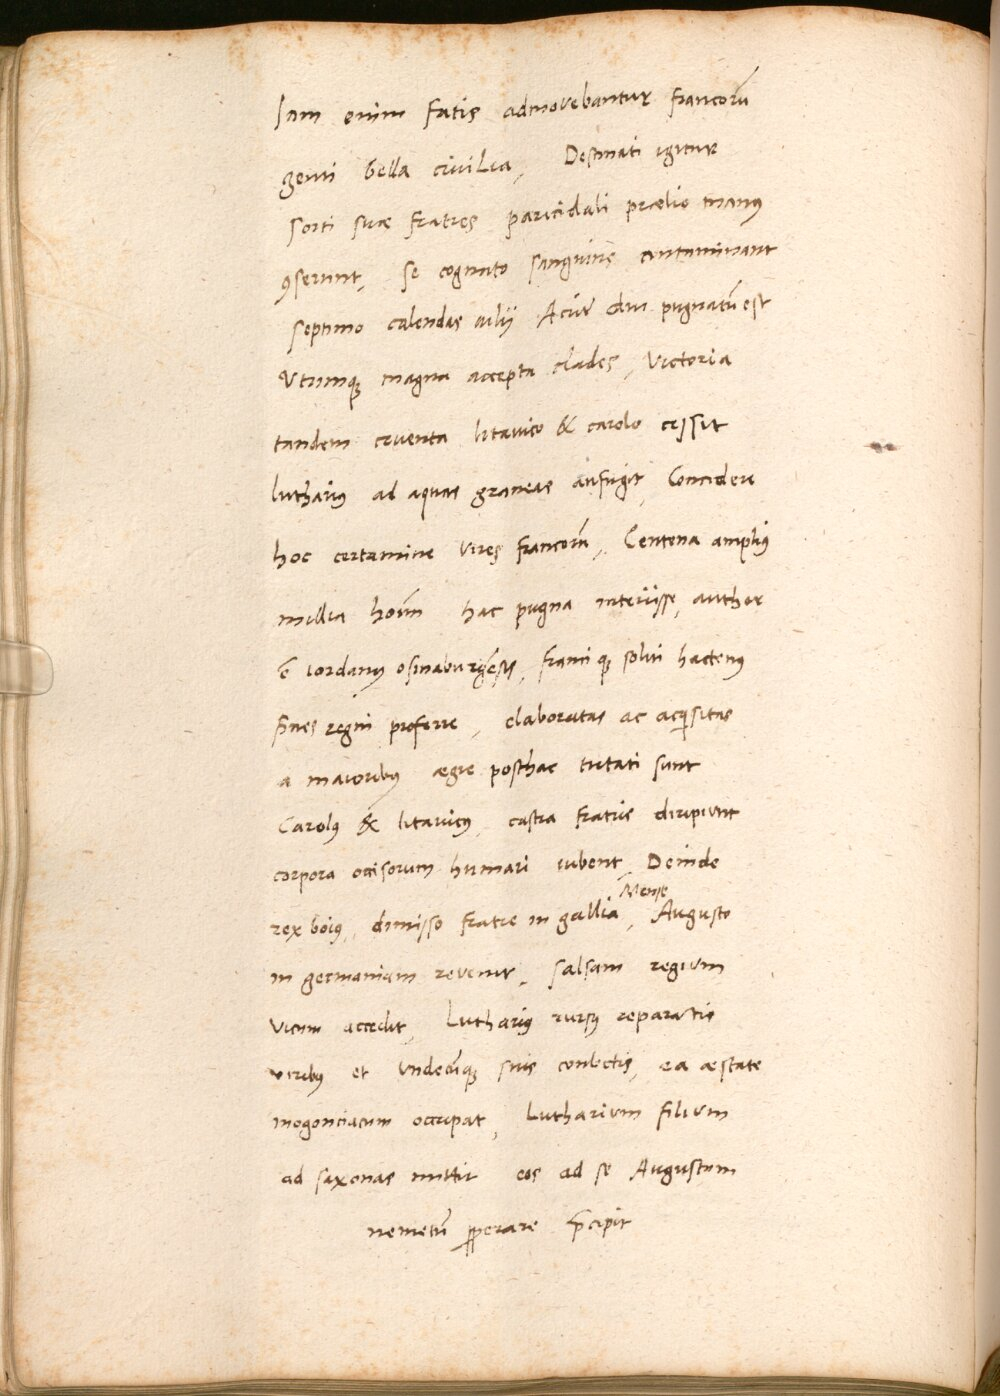 Iam enim fatis admovebantur francorū
genti bella civilia, Destinati igitur
sorti suæ fratres paricidali prælio manus
ꝯserunt, se cognato sanguine contaminant
septimo calendas iulij Acriter diu pugnatū est
Utrimqȝ magna accepta clades, Victoria
tandem cruenta litavico & carolo cessit
lutharius ad aquas graneas aufugit, Concidere
hoc certamine vires francorū, Centena amplius
millia hoīm hac pugna interiisse, author
ē iordanus osinaburgēsis, franci qȝ soliti hactenus
fines regni proferre, elaboratas ac acqsitas
a maioribus ægre posthac tutati sunt
Carolus & litavicus, castra fratris diripiunt
corpora occisorum humari iubent, Deinde
rex boius, dimisso fratre in gallia, Mense Augusto
in germaniam revertitur, salsam regium
vicum accedit, Lutharius rursus reparatis
viribus et undecūqȝ suis conlectis, ea æstate
mogonciacum occupat, Lutharium filium
ad saxonas mittit eos ad se Augustam
nemetū ꝓperare p̄cipit